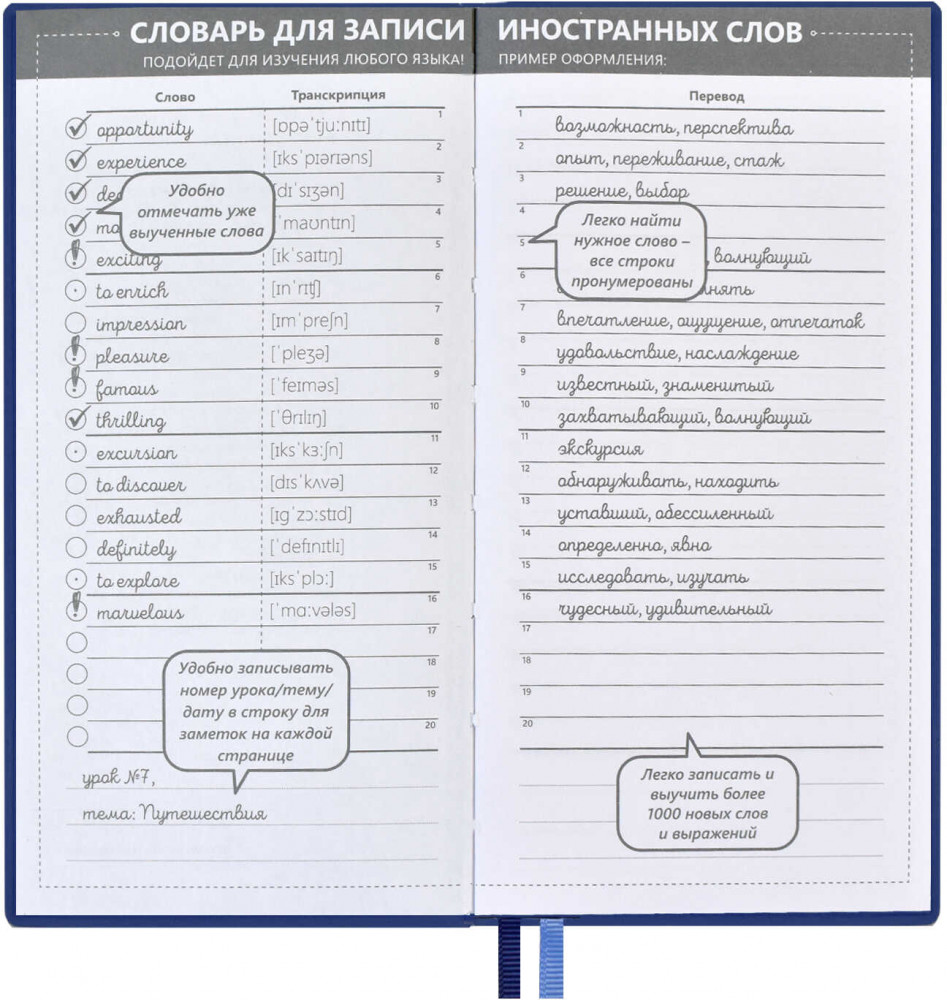 СЛОВАРЬ ДЛЯ ЗАПИСИ
ПОДОЙДЕТ ДЛЯ ИЗУЧЕНИЯ ЛЮБОГО ЯЗЫКА!
Слово Транскрипция
opportunity [ɒpəˈtju:nɪtɪ] 1
experience [ɪksˈpɪərɪəns] 2
[dɪˈsɪʒən] 3
ˈmaʊntɪn] 4
exciting [ɪkˈsaɪtɪŋ] 5
to enrich [ɪnˈrɪʧ] 6
impression [ɪmˈpreʃn] 7
pleasure [ˈpleʒə] 8
famous [ˈfeɪməs] 9
thrilling [ˈθrɪlɪŋ] 10
excursion [ɪksˈkɜ:ʃn] 11
to discover [dɪsˈkʌvə] 12
exhausted [ɪgˈzɔ:stɪd] 13
definitely [ˈdefɪnɪtlɪ] 14
to explore [ɪksˈplɔ:] 15
marvelous [ˈmɑ:vələs] 16
17
18
19
20
Удобно
отмечать уже
выученные слова
Удобно записывать
номер урока/тему/
дату в строку для
заметок на каждой
странице
урок №7,
тема: Путешествия
ИНОСТРАННЫХ СЛОВ
ПРИМЕР ОФОРМЛЕНИЯ:
Перевод
1 возможность, перспектива
2 опыт, переживание, стаж
3 решение, выбор
4
5 , волнующий
6
7 впечатление, ощущение, отпечаток
8 удовольствие, наслаждение
9 известный, знаменитый
10 захватывающий, волнующий
11 экскурсия
12 обнаруживать, находить
13 уставший, обессиленный
14 определенно, явно
15 исследовать, изучать
16 чудесный, удивительный
17
18
19
20
Легко найти
нужное слово –
все строки
пронумерованы
Легко записать и
выучить более
1000 новых слов
и выражений